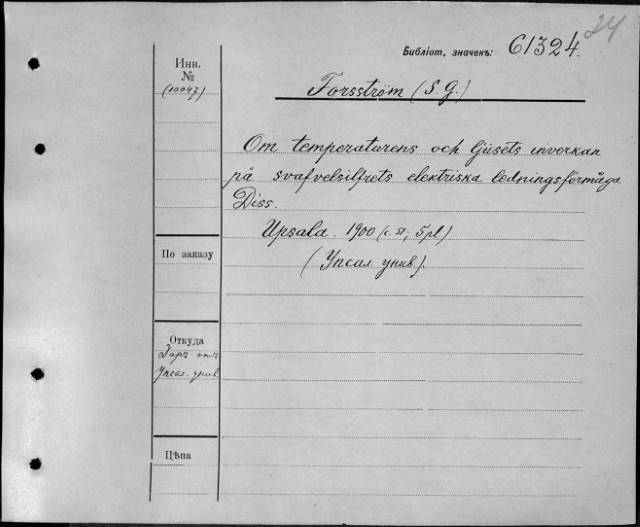 24
Библіот. значекъ: 61324.
Инв.
№
(10047)
Forsström (S. G.)
Om temperaturens och ljusets inverkan
på svafvelsilfrets elektriska ledningsförmåga
Diss.
Upsala. 1900 (c. st; 5 pl)
(Упсал. унив.).
По заказу
Откуда
Даръ отъ
Упсал. унив.
Цѣна